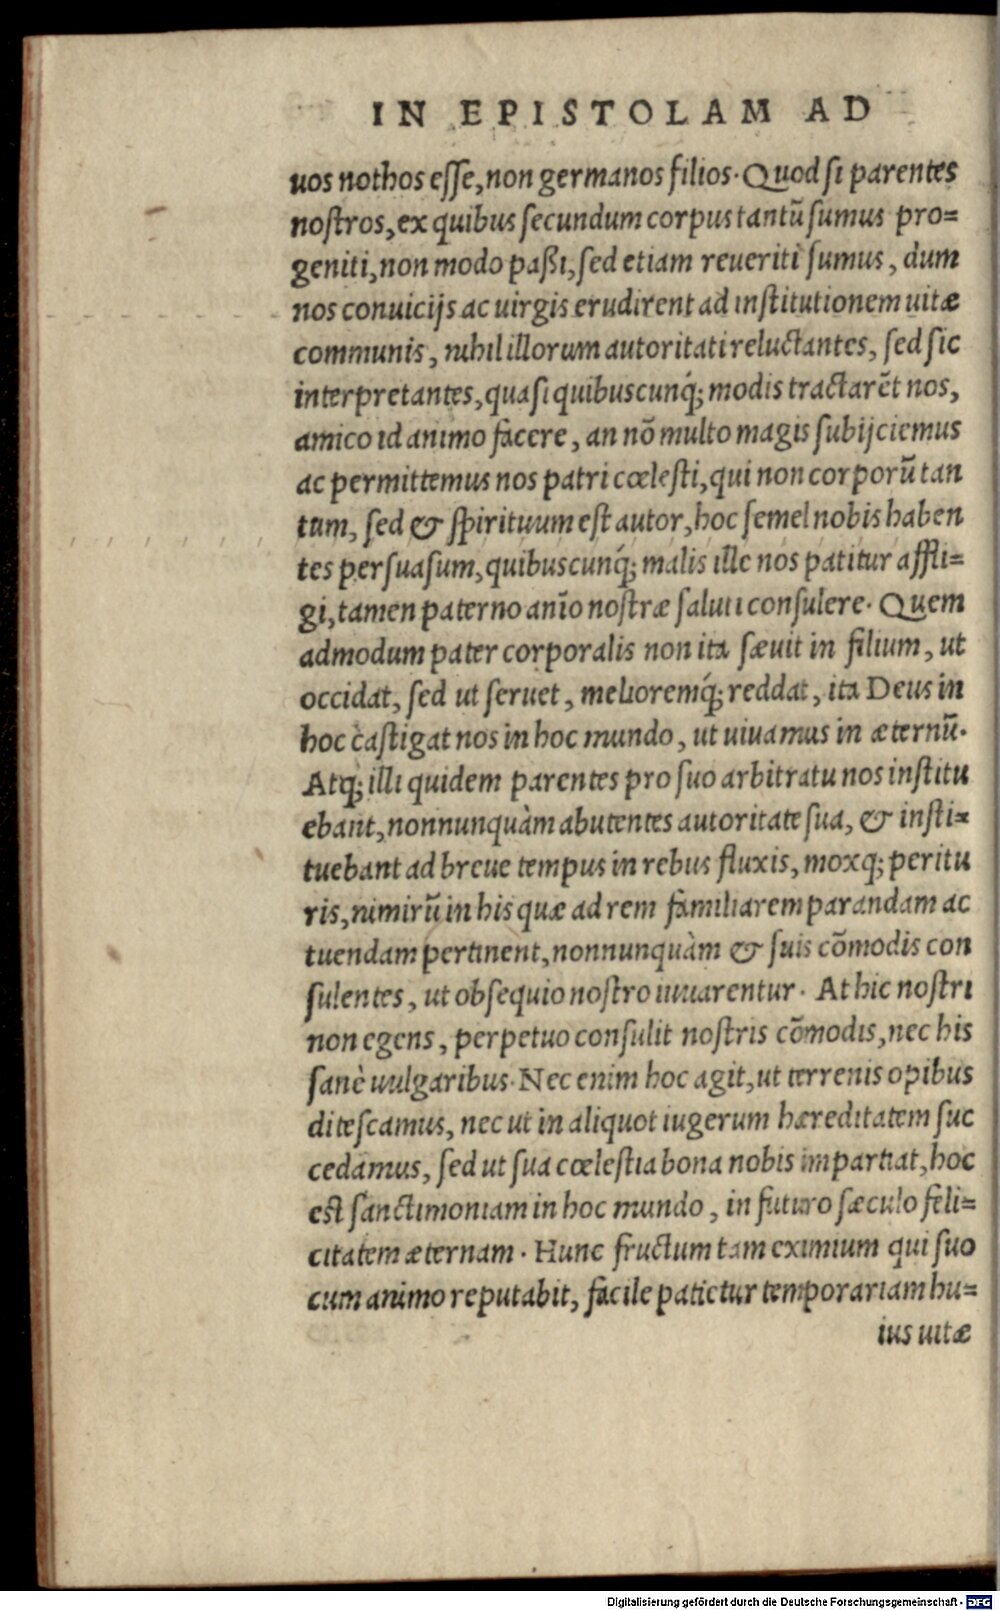 IN EPISTOLAM AD
uos nothos esse, non germanos filios. Quod si parentes
nostros, ex quibus secundum corpus tantũ sumus pro=
geniti, non modo paßi, sed etiam reueriti sumus, dum
nos conuicijs ac uirgis erudirent ad institutionem uitæ
communis, nihil illorum autoritati reluctantes, sed sic
interpretantes, quasi quibuscunq́; modis tractarẽt nos,
amico id animo facere, an nõ multo magis subijciemus
ac permittemus nos patri cœlesti, qui non corporũ tan
tum, sed & spirituum est autor, hoc semel nobis haben
tes persuasum, quibuscunq́; malis ille nos patitur affli=
gi, tamen paterno anĩo nostræ saluti consulere. Quem
admodum pater corporalis non ita sæuit in filium, ut
occidat, sed ut seruet, melioremq́; reddat, ita Deus in
hoc castigat nos in hoc mundo, ut uiuamus in æternũ.
Atq; illi quidem parentes pro suo arbitratu nos institu
ebant, nonnunquàm abutentes autoritate sua, & insti=
tuebant ad breue tempus in rebus fluxis, moxq; peritu
ris, nimirũ in his quæ ad rem familiarem parandam ac
tuendam pertinent, nonnunquàm & suis cõmodis con
sulentes, ut obsequio nostro iuuarentur. At hic nostri
non egens, perpetuo consulit nostris cõmodis, nec his
sanè uulgaribus. Nec enim hoc agit, ut terrenis opibus
ditescamus, nec ut in aliquot iugerum hæreditatem suc
cedamus, sed ut sua cœlestia bona nobis impartiat, hoc
est sanctimoniam in hoc mundo, in futuro sæculo feli=
citatem æternam. Hunc fructum tam eximium qui suo
cum animo reputabit, facile patietur temporariam hu=
ius uitæ
Digitalisierung gefördert durch die Deutsche Forschungsgemeinschaft - DFG